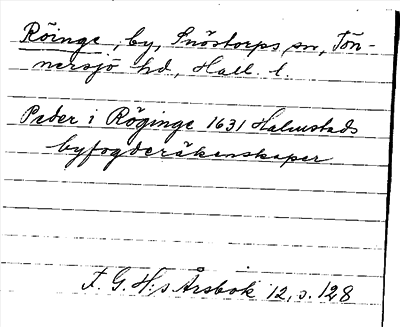 Röinge, by, Snöstorps sn, Tön-
nersjö hd., Hall. l.
Peder i Röginge 1631 Halmstads
byfogderäkenskaper
F. G. H:s Årsbok 12, s. 128